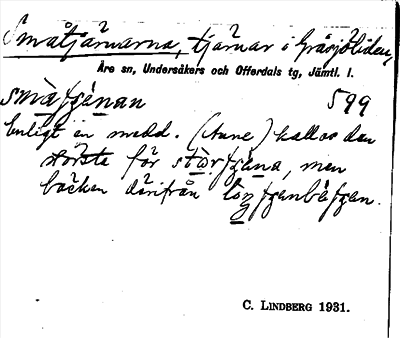 Småtjärnarna, tjärnar i Gråsjöliden,
Åre sn, Undersåkers och Offerdals tg, Jämtl. l.
599
Enligt en medd. (Aune) kallas den
största för, men
bäcken därifrån
C. LINDBERG 1931.